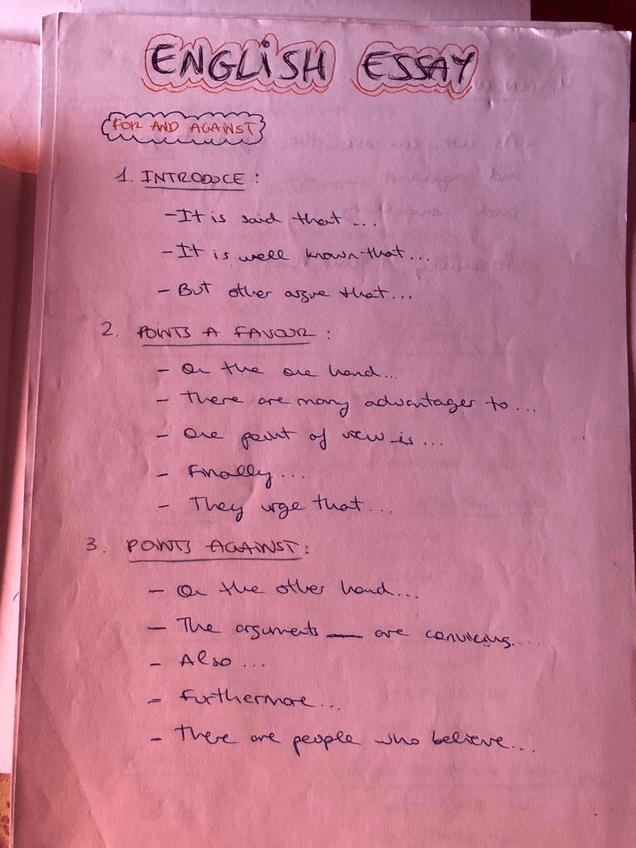 ENGLISH ESSAY
FOR AND AGAINST
1. INTRODUCE :
- It is said that ...
- It is well known that ...
- But other argue that ...
2. POINTS A FAVOUR :
- On the one hand...
- There are many advantages to ...
- One point of view is ...
- Finally ...
- They urge that ...
3. POINTS AGAINST :
- On the other hand ...
- The arguments ___ are convincing.
- Also ...
- Furthermore ...
- There are people who believe ...